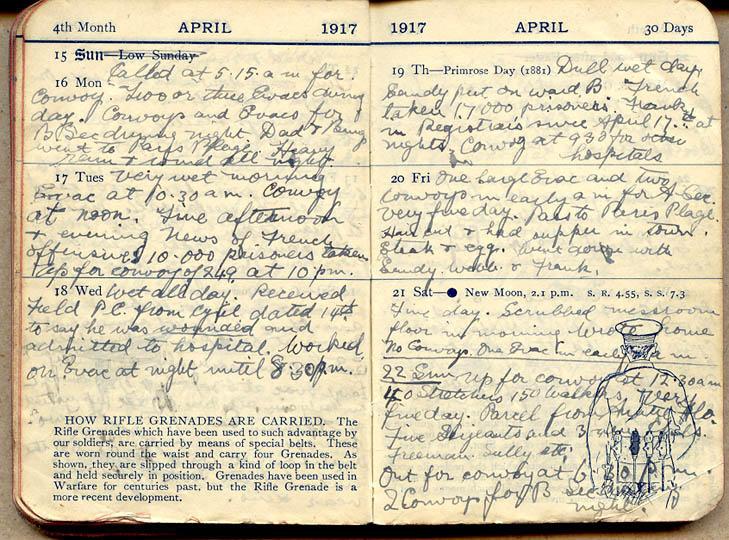 4th Month APRIL 1917
15 Sun—Low Sunday
16 Mon Called at 5.15 a m for
Convoy. Two or three Evacs during
day. Convoys and Evacs for
B Sec during night. Dad &
went to Paris Plage. Heavy
rain & wind all night
17 Tues Very wet morning
Evac at 10.30 a m. Convoy
at noon. Fine afternoon
& evening News of French
offensive 10.000 prisoners taken
Up for convoy of 249 at 10 pm.
18 Wed Wet all day. Received
Field P.C. from Cyril dated 14th
to say he was wounded and
admitted to hospital. Worked
on Evac at night until 8.30 p.m.
HOW RIFLE GRENADES ARE CARRIED. The
Rifle Grenades which have been used to such advantage by
our soldiers, are carried by means of special belts. These
are worn round the waist and carry four Grenades. As
shown, they are slipped through a kind of loop in the belt
and held securely in position. Grenades have been used in
Warfare for centuries past, but the Rifle Grenade is a
more recent development.
1917 APRIL 30 Days
19 Th—Primrose Day (1881) Dull wet day,
Sandy put on ward B. French
taken 17000 prisoners. Frank
in Registrars since April 17th at
nights. Convoy at 9 30 for other
hospitals
20 Fri One large Evac and two
convoys in early a m for A Sec.
very fine day. Pass to Paris Plage.
Hair cut & had supper in town.
Steak & egg. Went down with
Sandy. Webb & Frank.
21 Sat—● New Moon, 2.1 p.m. S. R. 4.55, S. S. 7.3
Fine day. Scrubbed messroom
floor in morning Wrote home
No Convoys. One Evac in early a m
22 Sun Up for convoy at 12.30 a m
Stretchers 150 walkers. Very
fine day. Parcel from
Five Sergeants and 3
Freeman. Sully etc.
Out for convoy at 6 30 P.m.
2 Convoys for B sec
night.